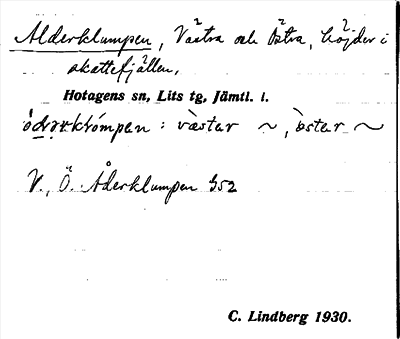 Alderklumpen, Västra och Östra, höjder i
skattefjällen,
Hotagens sn, Lits tg, Jämtl. l.
: väster ~, öster ~
V., Ö. Åderklumpen G52
C. Lindberg 1930.